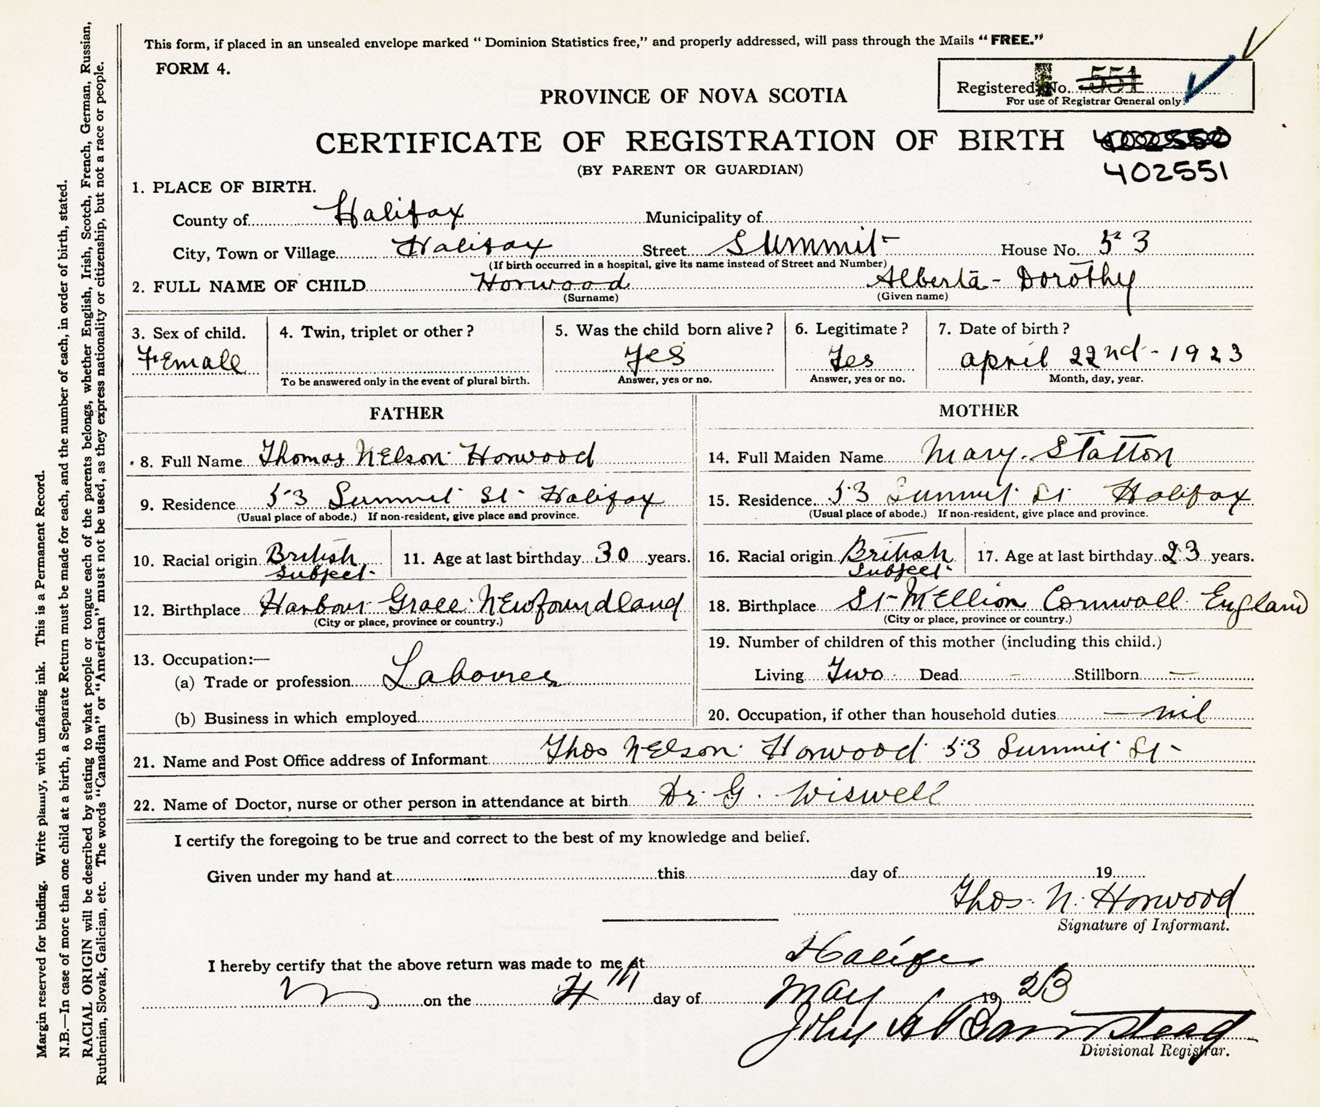 This form, if placed in an unsealed envelope marked “ Dominion Statistics free,” and properly addressed, will pass through the Mails “ FREE.”
FORM 4.
Registered No. 551
For use of Registrar General only.
PROVINCE OF NOVA SCOTIA
CERTIFICATE OF REGISTRATION OF BIRTH
402551
(BY PARENT OR GUARDIAN)
1. PLACE OF BIRTH.
County of Halifax Municipality of
City, Town or Village Halifax Street Summit House No. 53
(If birth occurred in a hospital, give its name instead of Street and Number)
2. FULL NAME OF CHILD Horwood Alberta - Dorothy
(Surname) (Given name)
3. Sex of child. 4. Twin, triplet or other ? 5. Was the child born alive ? 6. Legitimate ? 7. Date of birth ?
Female Yes Yes april 22nd - 1923
To be answered only in the event of plural birth. Answer, yes or no. Answer, yes or no. Month, day, year.
FATHER MOTHER
8. Full Name Thomas Nelson Horwood 14. Full Maiden Name Mary Statton
9. Residence 53 Summit St Halifax 15. Residence 53 Summit St Halifax
(Usual place of abode.) If non-resident, give place and province. (Usual place of abode.) If non-resident, give place and province.
10. Racial origin British Subject 11. Age at last birthday 30 years. 16. Racial origin British Subject 17. Age at last birthday 23 years.
12. Birthplace Harbour Grace Newfoundland 18. Birthplace St Mellion Cornwall England
(City or place, province or country.) (City or place, province or country.)
19. Number of children of this mother (including this child.)
13. Occupation:—
(a) Trade or profession Labourer Living Two Dead - Stillborn —
(b) Business in which employed 20. Occupation, if other than household duties — nil
21. Name and Post Office address of Informant Thos Nelson Horwood 53 Summit St -
22. Name of Doctor, nurse or other person in attendance at birth Dr. G. Wiswell
I certify the foregoing to be true and correct to the best of my knowledge and belief.
Given under my hand at this day of 19
Thos. N. Horwood
Signature of Informant.
I hereby certify that the above return was made to me at Halifax
on the 4th day of May 1923
Divisional Registrar.
Margin reserved for binding. Write plainly, with unfading ink. This is a Permanent Record.
N.B.—In case of more than one child at a birth, a Separate Return must be made for each, and the number of each, in order of birth, stated.
RACIAL ORIGIN will be described by stating to what people or tongue each of the parents belongs, whether English, Irish, Scotch, French, German, Russian,
Ruthenian, Slovak, Galician, etc. The words “Canadian” or “American” must not be used, as they express nationality or citizenship, but not a race or people.